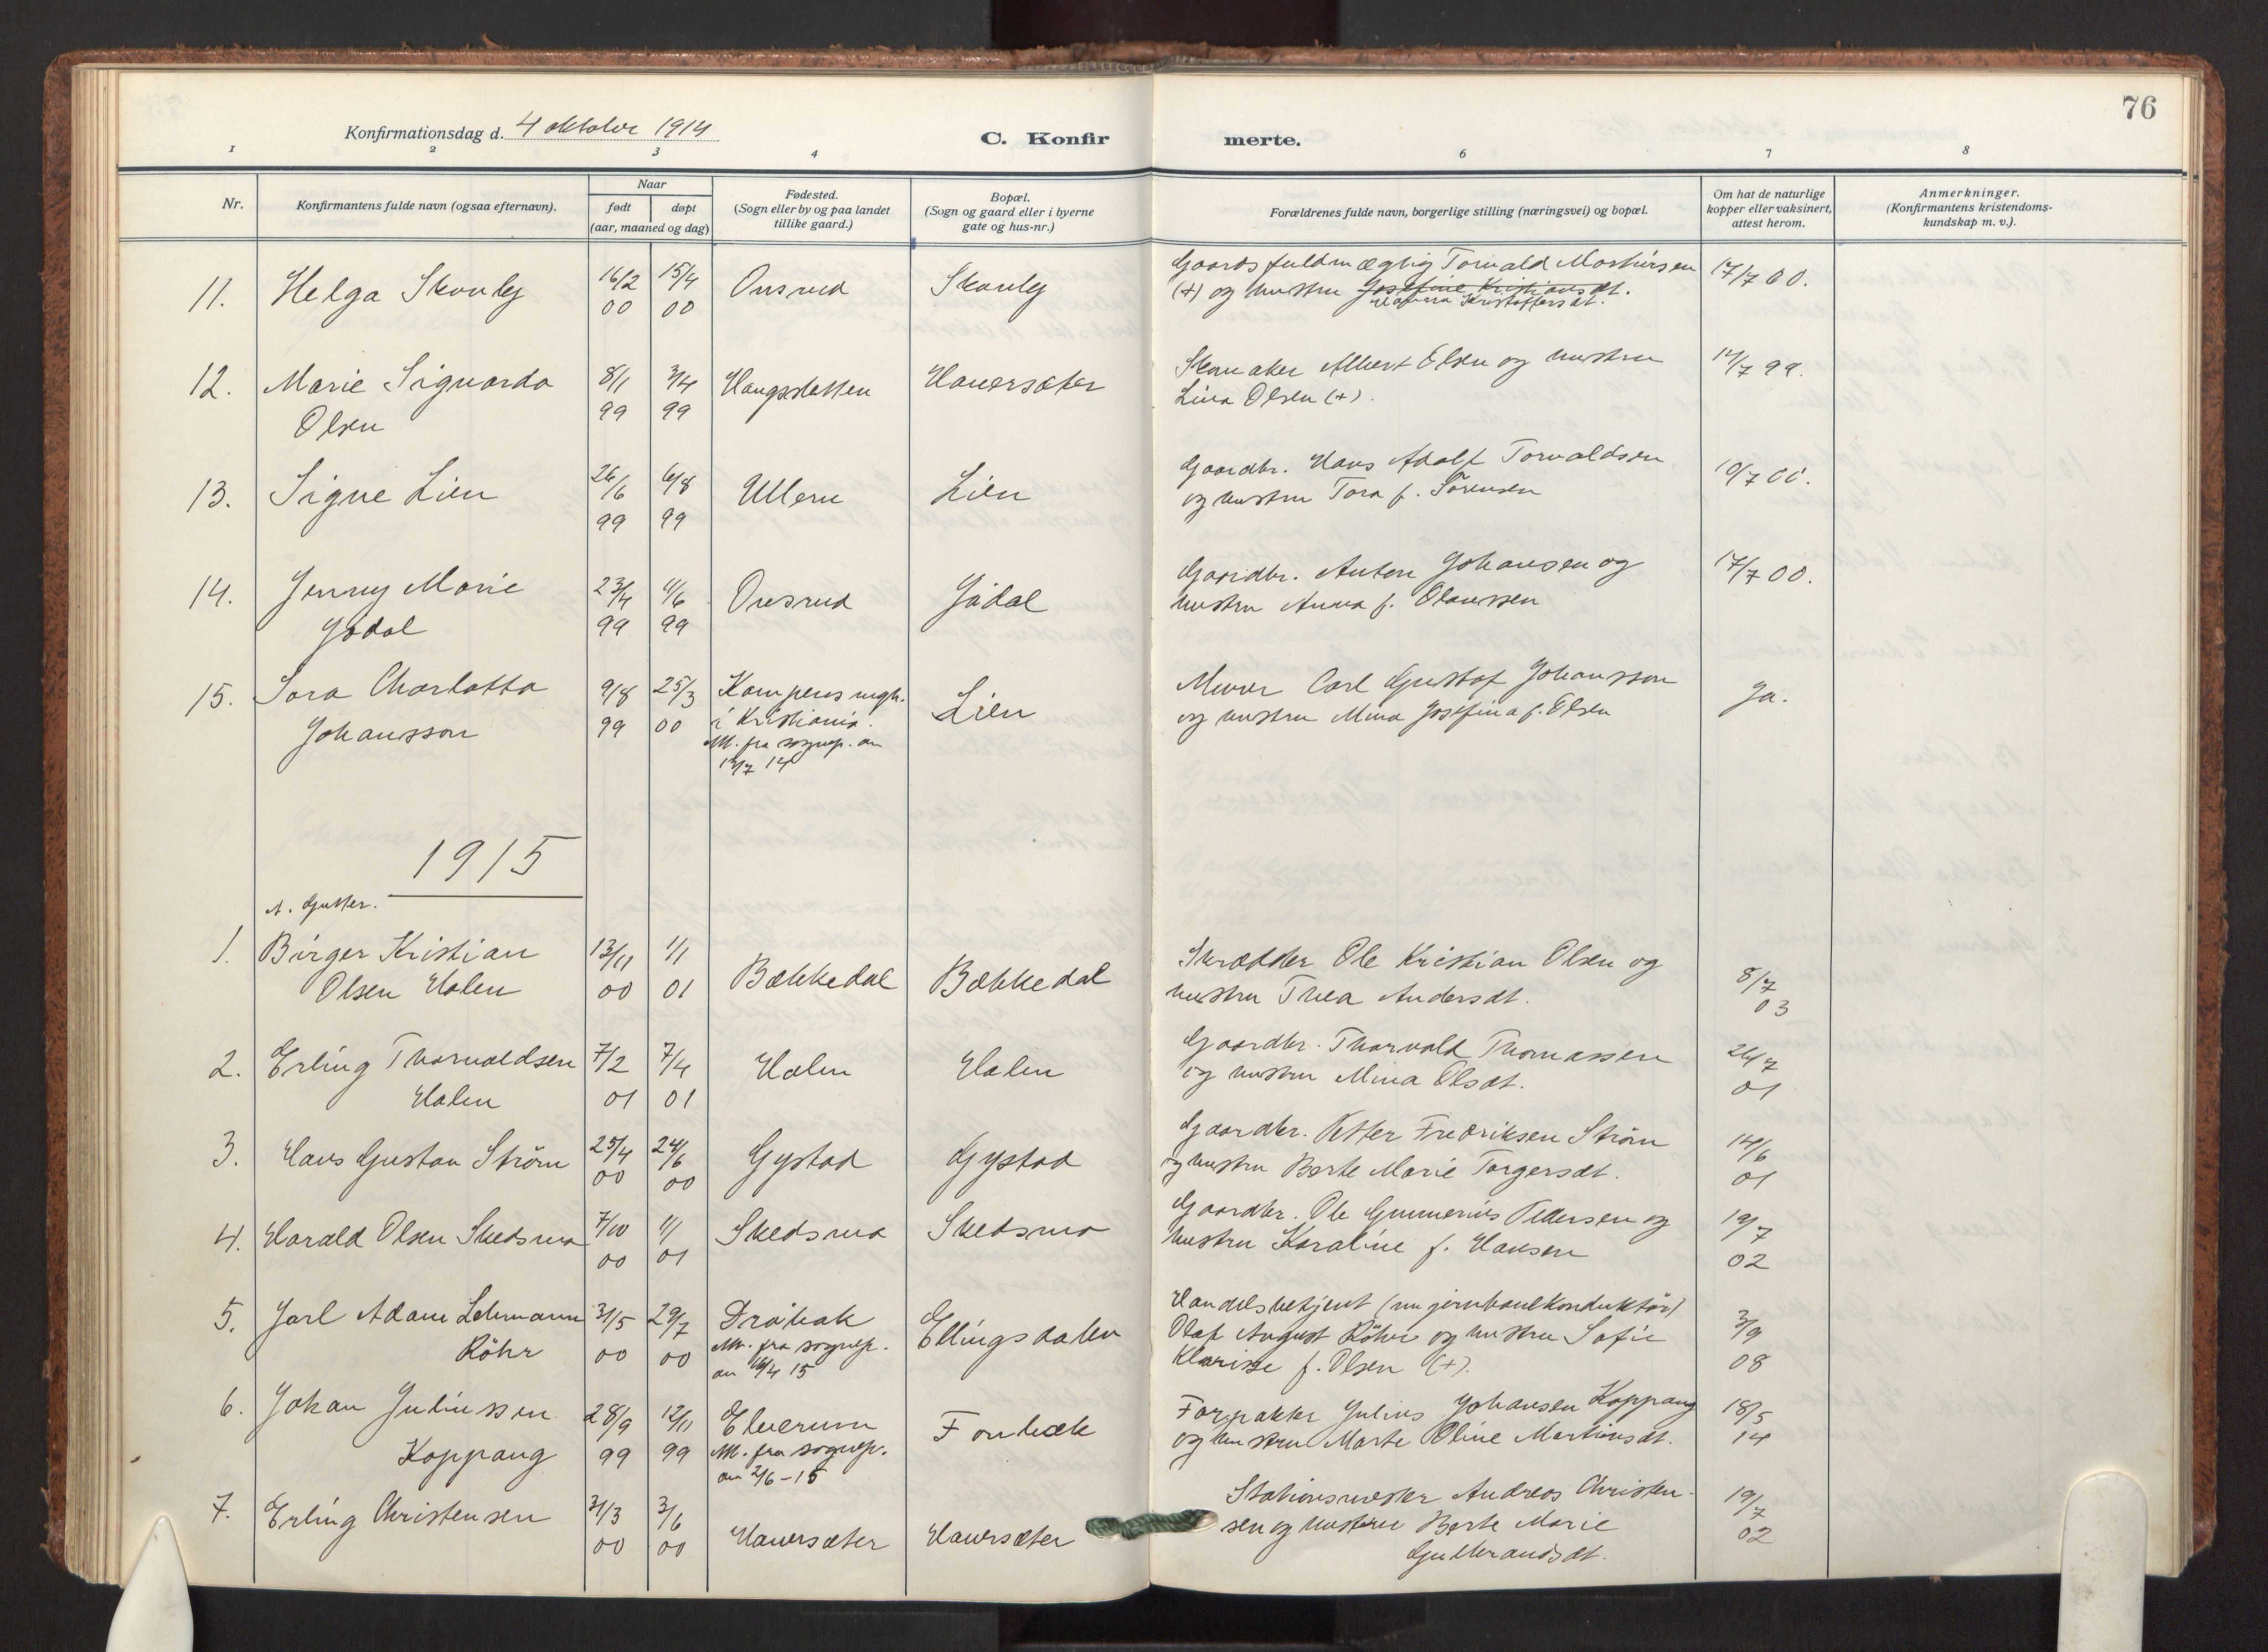 76
Konfirmationsdag d. 4 oktober 1914
C. Konfirmerte.
1 2 3 4 6 7 8
Nr.
Konfirmantens fulde navn (ogsaa efternavn).
Naar
født døpt
(aar, maaned og dag)
Fødested.
(Sogn eller by og paa landet
tillike gaard.)
Bopæl.
(Sogn og gaard eller i byerne
gate og hus-nr.)
Forældrenes fulde navn, borgerlige stilling (næringsvei) og bopæl.
Om hat de naturlige
kopper eller vaksinert,
attest herom.
Anmerkninger.
(Konfirmantens kristendoms-
kundskap m. v.).
11. Helga Skovly 16/2 00 15/4 00 Onsrud Skovly
Gaardsfuldmægtig Torvald Martinsen
(+) og hustru Josefine Kristiansdt.
Kristoffersdt.
17/7 00.
12. Marie Sigvarda
Olsen
8/1 99 3/4 99 Haugsletten Hauersæter
Skomaker Albert Olsen og hustru
Lina Olsen (+).
14/7 99.
13. Signe Lien 26/6 99 6/8 99 Ullern Lien
Gaardbr. Hans Adolf Torvaldsen
og hustru Tora f. Sørensen
10/7 00.
14. Jenny Marie
Jødal
23/4 99 11/6 99 Onsrud Jødal
Gaardbr. Anton Johansen og
hustru Anna f. Olaussen
17/7 00.
15. Sara Charlotta
Johansson
9/8 99 25/3 00
Kampens mgh.
i Kristiania.
M. fra sognep. an
14/7 14
Lien
Murer Carl Gustaf Johansson
og hustru Mina Josefina f. Olsen
Ja.
1915
A. Gutter.
1. Birger Kristian
Olsen Holen
13/11 00 1/1 01 Bækkedal Bækkedal
Skrædder Ole Kristian Olsen og
hustru Thea Andersdt.
8/7 03
2. Erling Thorvaldsen
Holen
7/2 01 7/4 01 Holen Holen
Gaardbr. Thorvald Thomassen
og hustru Mina Olsdt.
26/7 01
3. Hans Gustav Strøm 25/4 00 24/6 00 Gystad Gystad
Gaardbr. Petter Fredriksen Strøm
og hustru Berte Marie Torgersdt.
14/6 01
4. Harald Olsen Skedsmo 7/10 00 1/1 01 Skedsmo Skedsmo
Gaardbr. Ole Gunnerius Pedersen og
hustru Karoline f. Hansen
19/7 02
5. Jarl Adam Lehmann
Röhr
31/5 00 29/7 00
Drøbak
M. fra sognep.
an 16/4 15
Ellingsdalen
Handelsbetjent (nu jernbanekonduktør)
Olaf August Röhr og hustru Sofie
Klarisse f. Olsen (+).
3/9 08
6. Johan Juliussen
Koppang
28/9 99 12/11 99
Elverum
M. fra sognep.
an 2/6-15
Fonbæk
Forpakter Julius Johansen Koppang
og hustru Marte Oline Martinsdt.
18/5 14
7. Erling Christensen 31/3 00 3/6 00 Hauersæter Hauersæter
Stationsmester Andreas Christen-
sen og hustru Berte Marie
Gulbrandsdt.
19/7 02